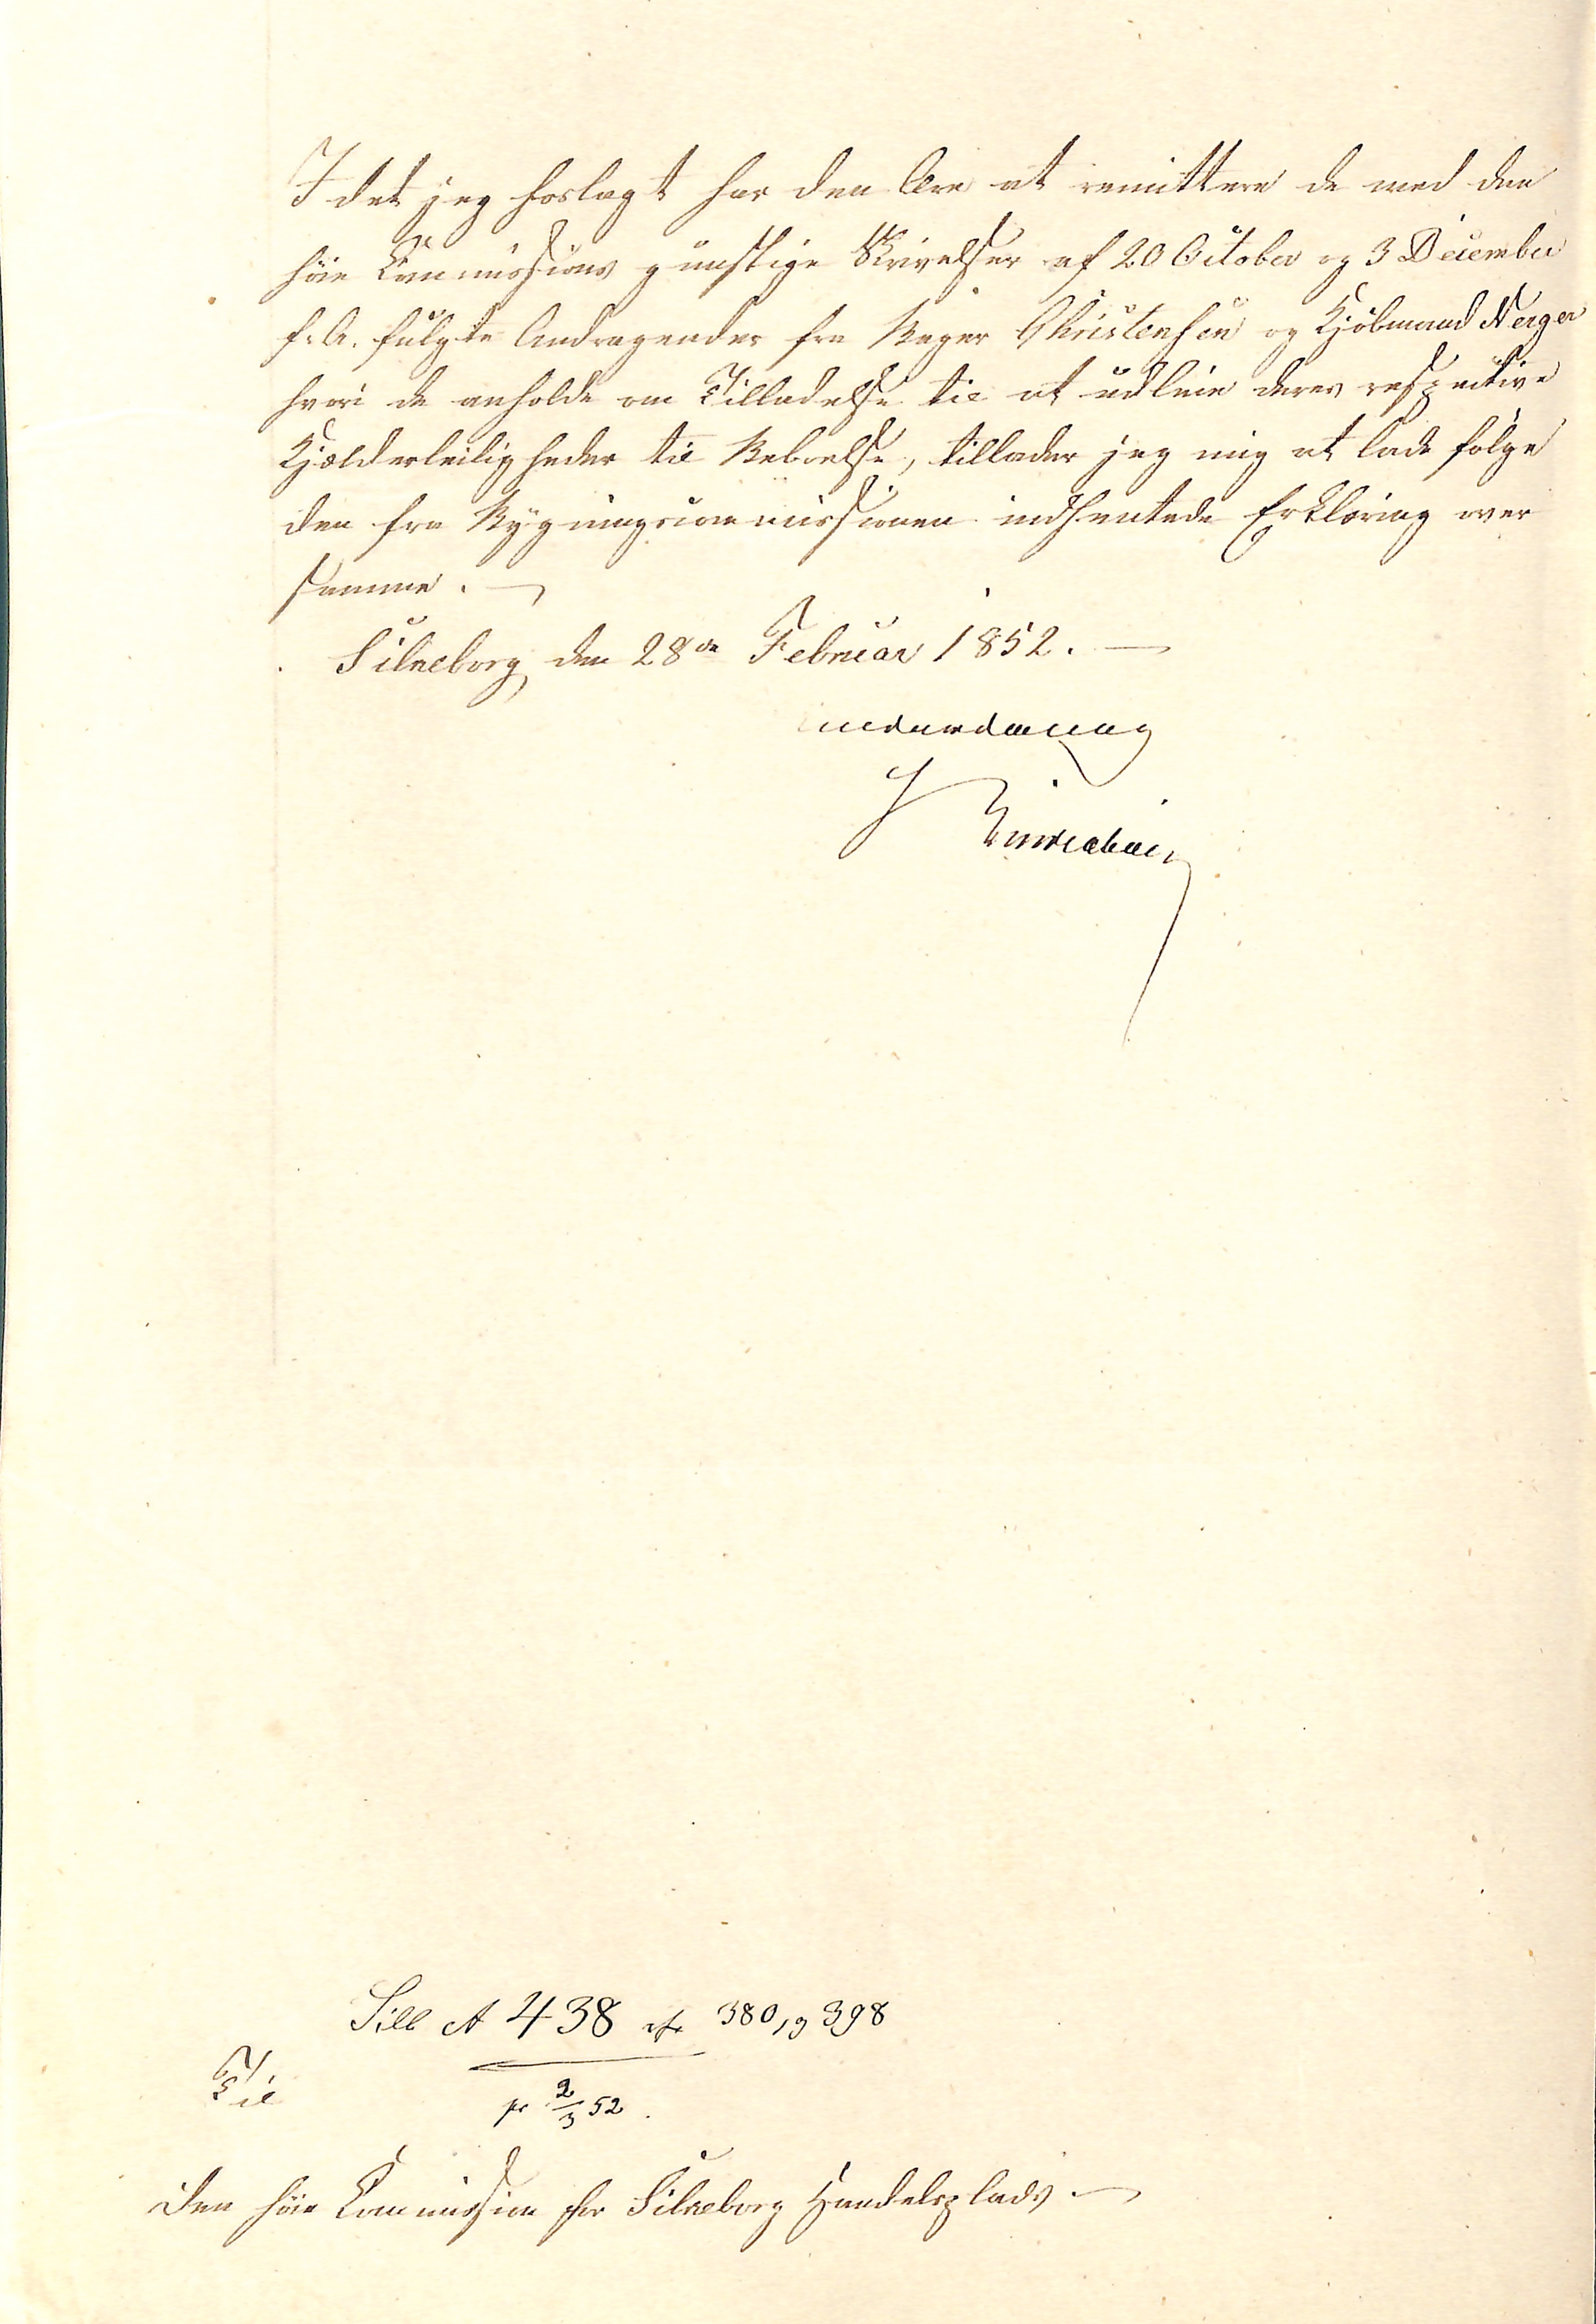 I det jeg hoslagt har den Ære at remittere de med den
höie Commissions gunstige Skrivelser af 20 October og 3 December
f. A. fulgte Andragender fra Bager Christensen og Kjöbmand Nerger
hvori de anholde om Tilladelse til at udleie deres respective
Kjælderleiligheder til Beboelse, tillader jeg mig at lade fölge
den fra Bygningscommissionen indhentede Erklæring over
samme. —
Silkeborg den 28de Februar 1852. —
underdanig
Sill A 438 cfr 380 og 398
Til
pr 2/3 52.
Den höie Commission for Silkeborg Handelsplads —